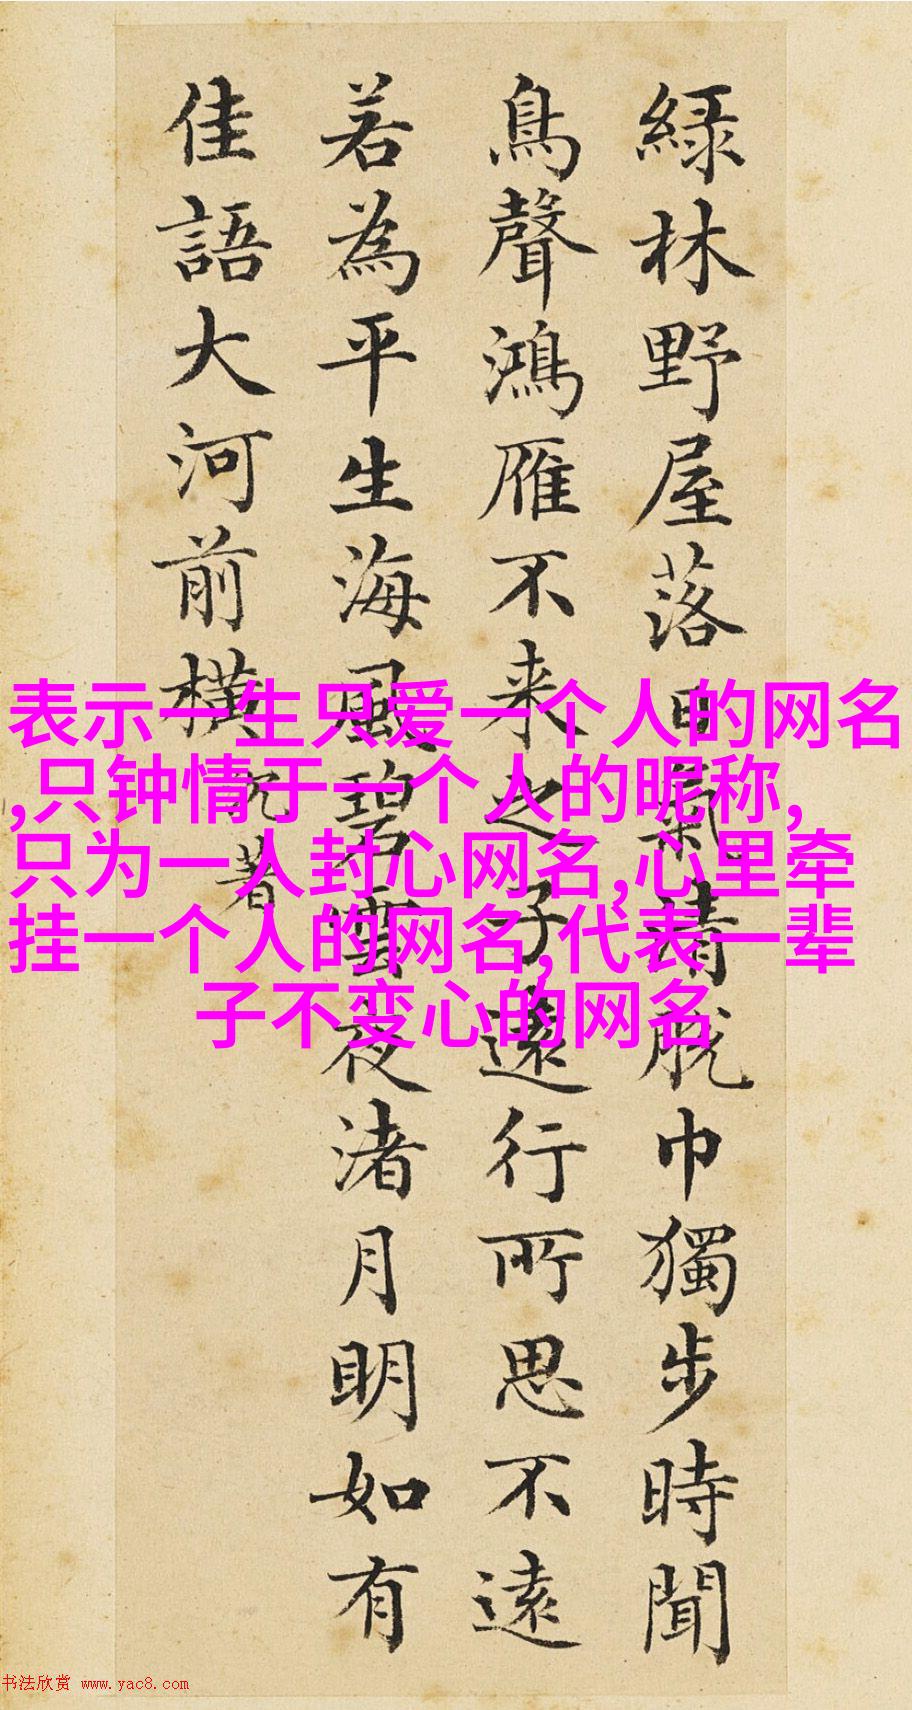 綠林野屋落日氣清脫巾獨步時聞
鳥聲鴻雁不來之子遠行所思不遠
若為平生海風碧雲夜渚月明如有
佳語大河前橫
沉著
表示一生只爱一个人的网名
,只钟情于一个人的昵称,
只为一人封心网名,心里牵
挂一个人的网名,代表一辈
子不变心的网名
书法欣赏 www.yac8.com